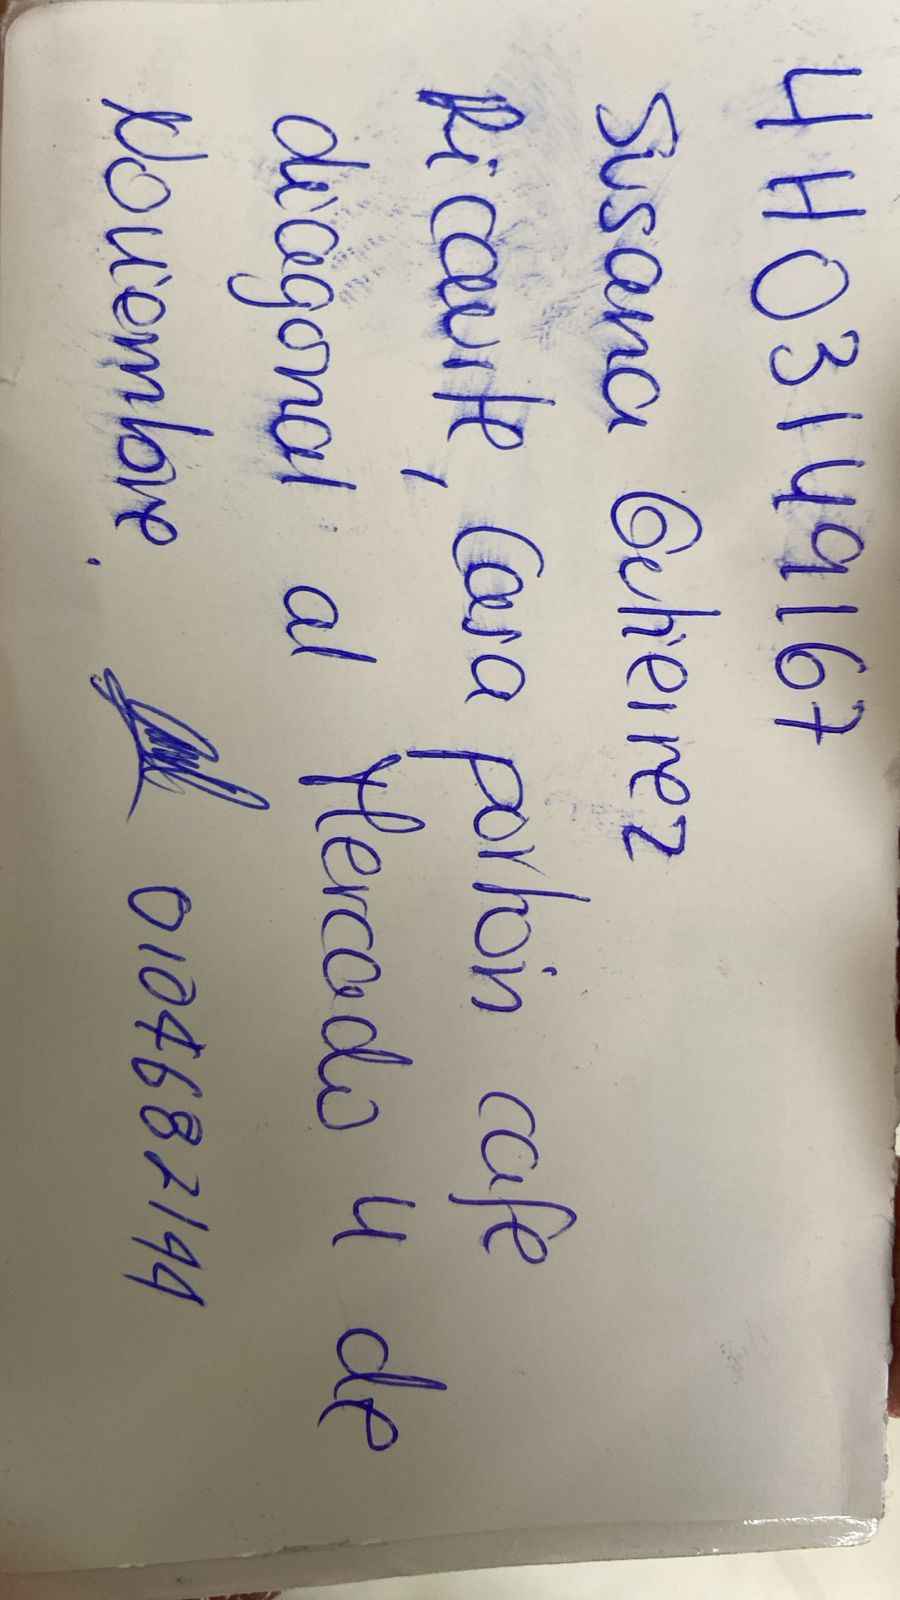 4H03149167
Susana Gutierrez
Ricaurte, Casa portoin cafe
diagonal al Mercado 4 de
Noviembre. 0104687144